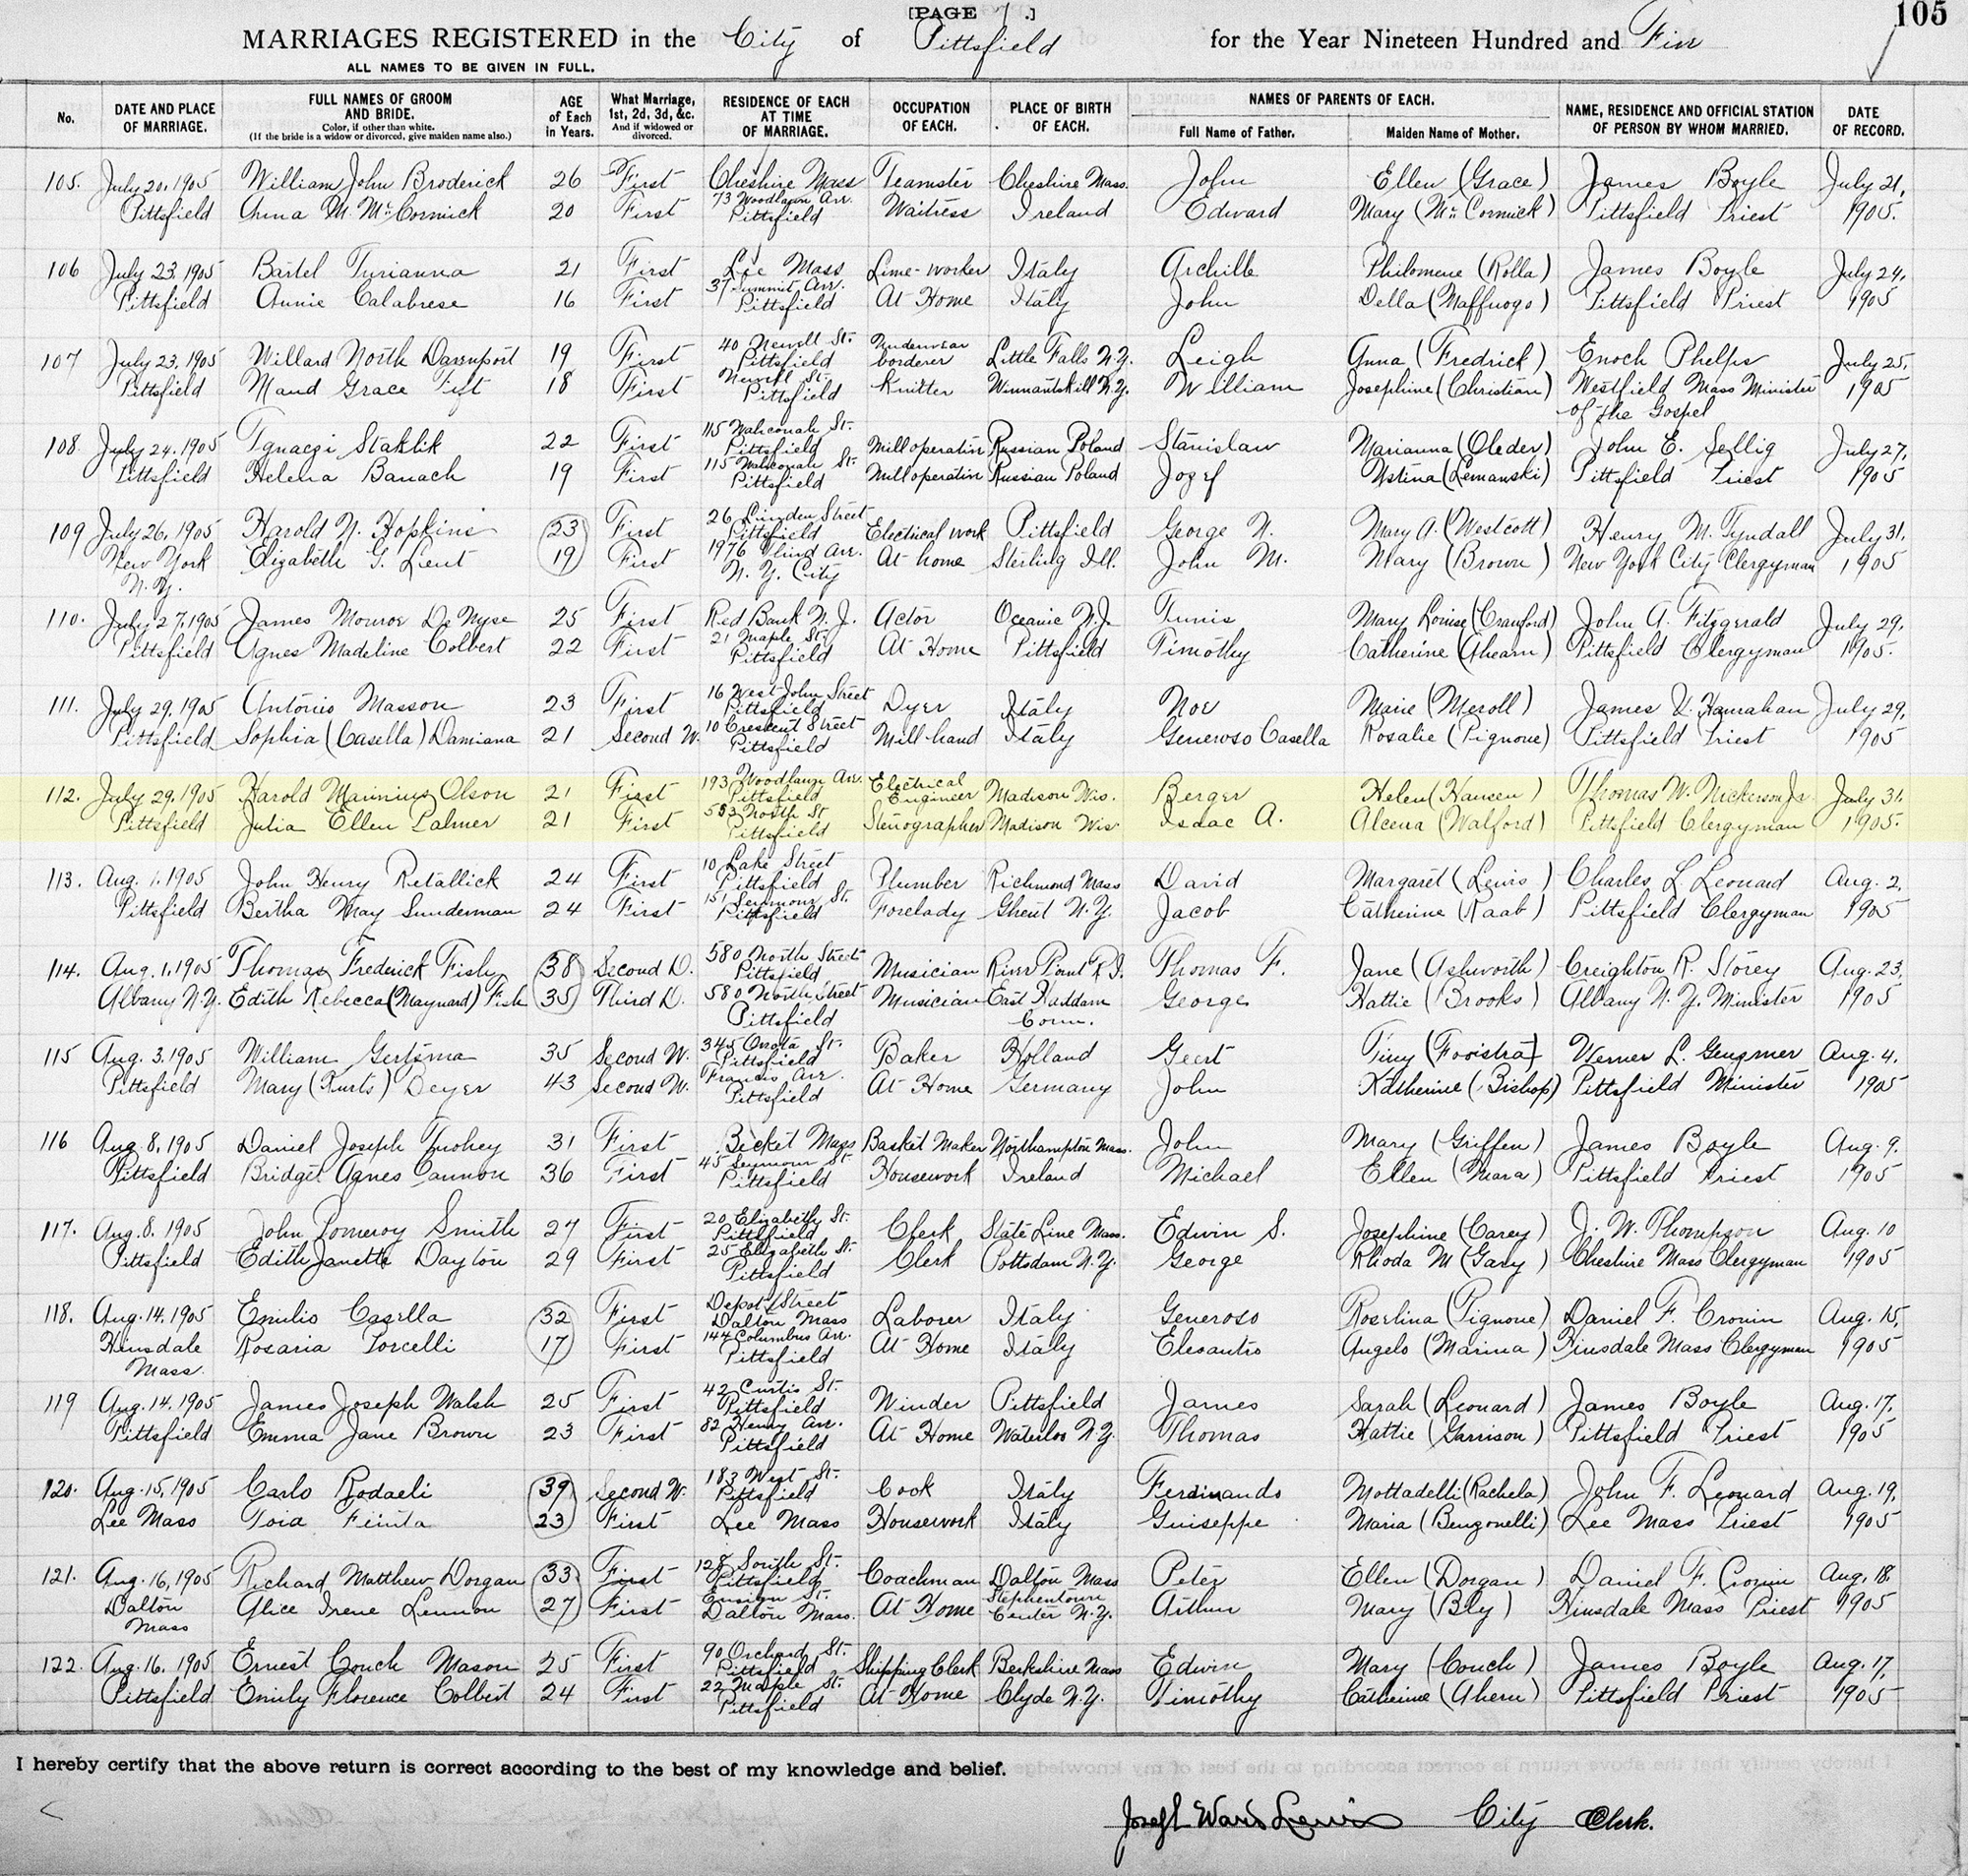 [PAGE 7.] 105
MARRIAGES REGISTERED in the City of Pittsfield for the Year Nineteen Hundred and Five
ALL NAMES TO BE GIVEN IN FULL.
No. | DATE AND PLACE OF MARRIAGE. | FULL NAMES OF GROOM AND BRIDE. Color, if other than white. (If the bride is a widow or divorced, give maiden name also.) | AGE of Each in Years. | What Marriage, 1st, 2d, 3d, &c. And if widowed or divorced. | RESIDENCE OF EACH AT TIME OF MARRIAGE. | OCCUPATION OF EACH. | PLACE OF BIRTH OF EACH. | NAMES OF PARENTS OF EACH. Full Name of Father. | Maiden Name of Mother. | NAME, RESIDENCE AND OFFICIAL STATION OF PERSON BY WHOM MARRIED. | DATE OF RECORD.
105. July 20, 1905 William John Broderick 26 First Cheshire Mass Teamster Cheshire Mass. John Ellen (Grace) James Boyle July 21,
Pittsfield Anna M. McCormick 20 First 73 Woodlawn Av. Pittsfield Waitress Ireland Edward Mary (McCormick) Pittsfield Priest 1905.
106 July 23, 1905 Bartel Turianna 21 First Lee Mass Lime-worker Italy Archille Philomene (Rolla) James Boyle July 24,
Pittsfield Annie Calabrese 16 First 37 Summit Av. Pittsfield At Home Italy John Della (Maffuogo) Pittsfield Priest 1905
107 July 23, 1905 Willard North Davenport 19 First 40 Newell St. Pittsfield Underwear borderer Little Falls N.Y. Leigh Anna (Fredrick) Enoch Phelps July 25,
Pittsfield Maud Grace Tift 18 First Newell St. Pittsfield Knitter Wynantskill N.Y. William Josephine (Christian) Westfield Mass Minister 1905
of the Gospel
108. July 24, 1905 Ignaczi Staklik 22 First 115 Wahconah St. Pittsfield Mill operative Russian Poland Stanislaw Marianna (Oleder) John E. Sellig July 27,
Pittsfield Helena Banach 19 First 115 Wahconah St. Pittsfield Mill operative Russian Poland Jozef Ustina (Lemanski) Pittsfield Priest 1905
109 July 26, 1905 Harold N. Hopkins 23 First 26 Linden Street Pittsfield Electrical work Pittsfield George N. Mary A. (Westcott) Henry M. Tyndall July 31,
New York Elizabeth G. Lent 19 First 1976 Av. N. Y. City At home Sterling Ill. John M. Mary (Brown) New York City Clergyman 1905
N. Y.
110. July 27, 1905 James Monroe De Nyse 25 First Red Bank N. J. Actor Oceanic N.J. Tunis Mary Louise (Crawford) John A. Fitzgerald July 29,
Pittsfield Agnes Madeline Colbert 22 First 21 Maple St. Pittsfield At Home Pittsfield Timothy Catherine (Ahearn) Pittsfield Clergyman 1905.
111. July 29, 1905 Antonio Masson 23 First 16 West John Street Pittsfield Dyer Italy Noe Marie (Meroll) James Hanrahan July 29,
Pittsfield Sophia (Casella) Damiana 21 Second W. 10 Crescent Street Pittsfield Mill hand Italy Generoso Casella Rosalie (Pignone) Pittsfield Priest 1905
112. July 29, 1905 Harold Marinius Olson 21 First 193 Woodlawn Av. Pittsfield Electrical Engineer Madison Wis. Berger Helen (Hansen) Thomas W. Nickerson Jr. July 31,
Pittsfield Julia Ellen Palmer 21 First 553 North St Pittsfield Stenographer Madison Wis Isaac A. Alcena (Walford) Pittsfield Clergyman 1905.
113. Aug. 1, 1905 John Henry Retallick 24 First 10 Lake Street Pittsfield Plumber Richmond Mass David Margaret (Lewis) Charles L Leonard Aug. 2,
Pittsfield Bertha May Sunderman 24 First 151 Seymour St. Pittsfield Forelady Ghent N.Y. Jacob Catherine (Raab) Pittsfield Clergyman 1905
114. Aug. 1, 1905 Thomas Frederick Fish 38 Second D. 580 North Street Pittsfield Musician River Point R.I. Thomas F. Jane (Ashworth) Creighton R. Storey Aug. 23,
Albany N.Y. Edith Rebecca (Maynard) Fish 35 Third D. 580 North Street Pittsfield Musician East Haddam Conn. George Hattie (Brooks) Albany N. Y. Minister 1905
115 Aug. 3, 1905 William Gertsma 35 Second W. 345 Onota St. Pittsfield Baker Holland Geert Tiny (Fooistra) Werner L. Genzmer Aug. 4,
Pittsfield Mary (Kurts) Deyer 43 Second W. Francis Av. Pittsfield At Home Germany John Katherine (Bishop) Pittsfield Minister 1905
116 Aug. 8, 1905 Daniel Joseph Tuohey 31 First Becket Mass Basket Maker Northampton Mass. John Mary (Griffen) James Boyle Aug. 9.
Pittsfield Bridget Agnes Cannon 36 First 45 Seymour St. Pittsfield Housework Ireland Michael Ellen (Mara) Pittsfield Priest 1905
117. Aug. 8, 1905 John Pomeroy Smith 27 First 20 Elizabeth St. Pittsfield Clerk State Line Mass. Edwin S. Josephine (Carey) J. W. Thompson Aug. 10
Pittsfield Edith Janette Dayton 29 First 25 Elizabeth St. Pittsfield Clerk Pottsdam N.Y. George Rhoda M (Gary) Cheshire Mass Clergyman 1905
118. Aug. 14, 1905 Emilio Casella 32 First Depot Street Dalton Mass Laborer Italy Generoso Roselina (Pignone) Daniel F. Cronin Aug. 15,
Hinsdale Rosaria Porcelli 17 First 144 Columbus Av. Pittsfield At Home Italy Elesantro Angelo (Marina) Hinsdale Mass Clergyman 1905
Mass.
119 Aug. 14, 1905 James Joseph Walsh 25 First 42 Curtis St. Pittsfield Winder Pittsfield James Sarah (Leonard) James Boyle Aug. 17,
Pittsfield Emma Jane Brown 23 First 82 Henry Av. Pittsfield At Home Waterloo N.Y. Thomas Hattie (Garrison) Pittsfield Priest 1905
120. Aug. 15, 1905 Carlo Rodaeli 39 Second W. 183 West St. Pittsfield Cook Italy Ferdinando Mottadelli (Rachela) John F. Leonard Aug. 19,
Lee Mass Toia 23 First Lee Mass Housework Italy Guiseppe Maria (Benzonelli) Lee Mass Priest 1905
121. Aug. 16, 1905 Richard Matthew Dorgan 33 First 128 South St. Pittsfield Coachman Dalton Mass Peter Ellen (Dorgan) Daniel F. Cronin Aug. 18.
Dalton Alice Irene Lennon 27 First Ensign St. Dalton Mass. At Home Stephentown Center N.Y. Arthur Mary (Bly) Hinsdale Mass Priest 1905
Mass
122. Aug. 16, 1905 Ernest Couch Mason 25 First 90 Orchard St. Pittsfield Shipping Clerk Berkshire Mass Edwin Mary (Couch) James Boyle Aug. 17,
Pittsfield Emily Florence Colbert 24 First 22 Maple St. Pittsfield At Home Clyde N.Y. Timothy Catherine (Ahern) Pittsfield Priest 1905
I hereby certify that the above return is correct according to the best of my knowledge and belief.
Joseph Ward Lewis City Clerk.